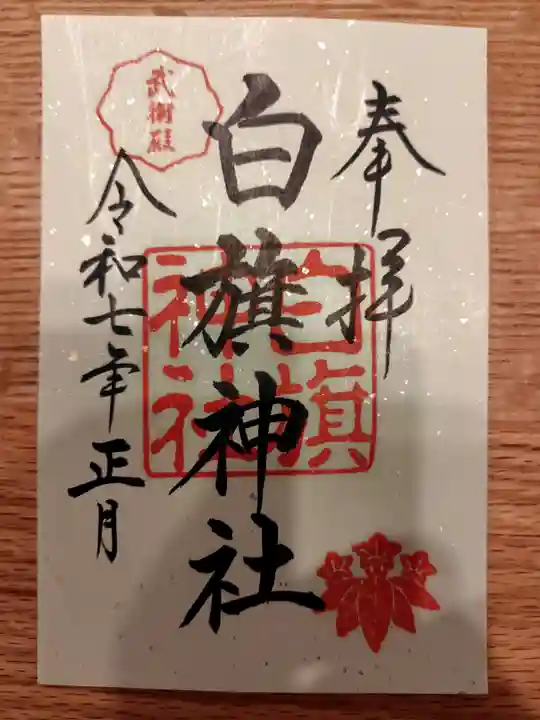 奉拝
白旗神社
令和七年正月
武衛殿
白旗
神社